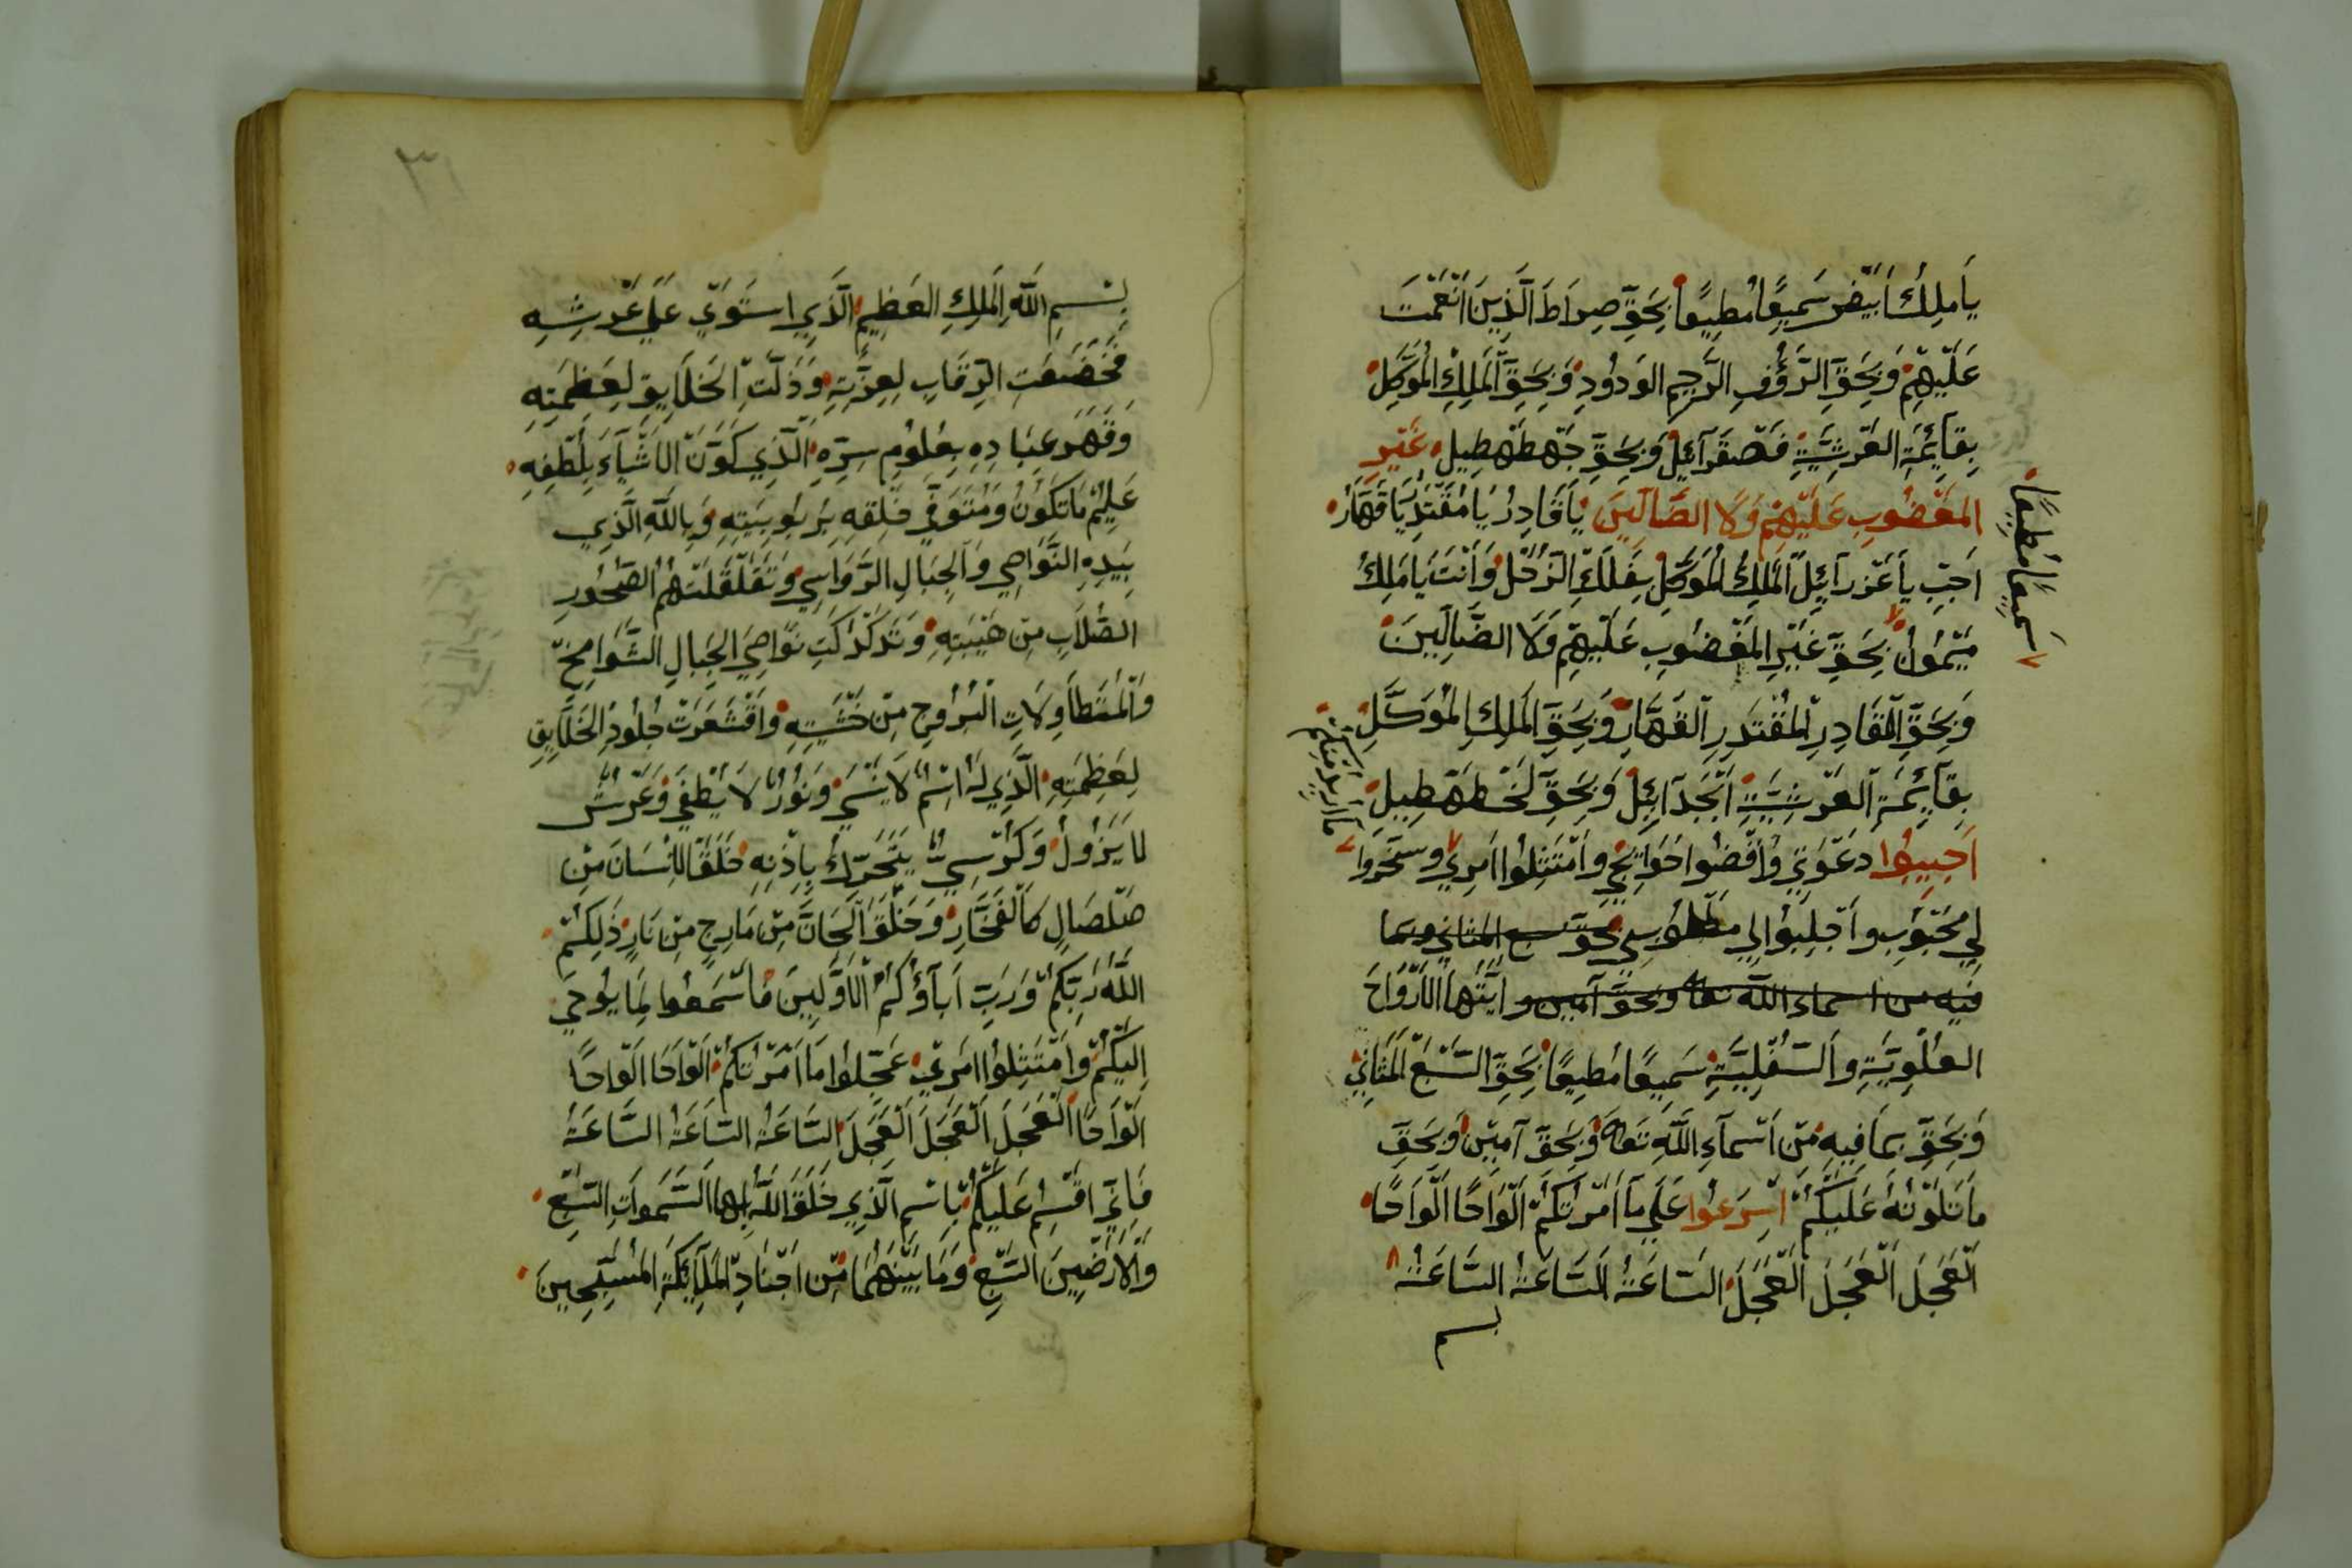 يَا مَلِكُ اَبْيَضْ سَمِيعًا مُطِيعًا بِحَقِّ صِرَاطَ الَّذِينَ اَنْعَمْتَ
عَلَيْهِمْ وَبِحَقِّ الرَّؤُفِ الرَّحِيمِ الوَدُودِ وَبِحَقِّ المَلِكِ المُوَكَّلِ
بِقَآئِمَةِ العَرْشِيَّةِ فَصْقَرَآئِلْ وَبِحَقِّ جَهْطَهْطِيلٍ غَيْرِ
المَغْضُوبِ عَلَيْهِمْ وَلَا الضَّآلِّينَ يَا قَادِرُ يَا مُقْتَدِرُ يَا قَهَّارُ
سَمِيعًا مُطِيعًا
اَجِبْ يَا عَزْرَآئِلْ المَلِكُ المُوَكَّلْ بِفَلَكِ الزُّحَلْ وَاَنْتَ يَا مَلِكُ
مَيْمُونُ بِحَقِّ غَيْرِ المَغْضُوبِ عَلَيْهِمْ وَلَا الضَّآلِّينَ
وَبِحَقِّ القَادِرِ المُقْتَدِرِ القَهَّارِ وَبِحَقِّ المَلِكِ المُوَكَّلِ
بِقَآئِمَةِ العَرْشِيَّةِ اَبْجَدَآئِلْ وَبِحَقِّ لَخْطَهْطِيلٍ
اَجِيبُوا دَعْوَتِي وَاقْضُوا حَوَائِجِي وَامْتَثِلُوا اَمْرِي وسخروا
ما اريد منكم
لِي مَحْبُوبِ وَاَجْلِبُوا لِي مَطْلُوبِي بحق سبع المثاني وبما
فيه من اسماء الله تعا وبحق آمين و اَيَّتُهَا الاَرْوَاحَ
العُلْوِيَّةِ وَالسُّفْلِيَّةِ سَمِيعًا مُطِيعًا بِحَقِّ السَّبْعَ المَثَانِي
وَبِحَقِّ بمَا فِيهِ مِنْ اَسْمآءِ اللهِ تَعَا وَبِحَقِّ آمِينْ وَبِحَقِّ
مَا تَلَوْتُهُ عَلَيْكُمْ اَسْرِعُوا عَلَي مَا اَمَرْتُكُمْ اَلْوَاحًا اَلْوَاحًا
اَلْعَجَلَ اَلْعَجَلَ اَلْعَجَلَ السَّاعَةُ السَّاعَةُ السَّاعَةُ
بسم
٣١
بِسْمِ اللهِ المَلِكِ العَظِيمِ الَّذِي اسْتَوَي عَلَي عَرْشِهِ
فَخَضَعَتِ الرِّقَابِ لِعِزَّتِهِ وَذَلَّتِ الخَلَايِقِ لِعَظَمَتِهِ
وَقَهَرَ عِبَادِهِ بِعُلُومِ سِرِّهِ الَّذِي كَوَّنَ الاَشْيَآءَ بِلُطْفِهِ
عَلِيمُ مَا تَكُونُ وَمُتَوَفِّي خَلْقِهِ بِرُبُوبِيَّتِهِ وَبِاللهِ الَّذِي
بِيَدِهِ النَّوَاصِي وَالجِبَالِ الرَّوَاسِي وَتَقَلْقَلَتْهُمُ الصُّخُورِ
الصُّلَابِ مِنْ هَيْبَتِهِ وَتَدَكْدَكَتِ نَوَاصِي الجِبَالِ الشَّوَامِخِ
وَالمُتَطَاوِلَاتِ البُرُوجِ مِنْ خَشْيَتِهِ وَاقْشَعَرَتْ جُلُودُ الخَلَايِقِ
لِعَظَمَتِهِ الَّذِي لَهُ اسْمٌ لَا يُنْسَي وَنُورٌ لَا يُطْفَي وَعَرْشٌ
لَا يَزُولُ وَكُرْسِيٌّ يَتَحَرَّكُ بِاِذْنِهِ خَلَقَ الاِنْسَانَ مِنْ
صَلْصَالٍ كَالْفَخَّارِ وَخَلَقَ الجَانَّ مِنْ مَارِجٍ مِنْ نَارٍ ذَلِكُمُ
اللهُ رَبُّكُمْ وَرَبِّ اَبَآؤُكُمُ الاَوَّلِينَ فَاسْمَعُوا لِمَا يُوحَي
اِلَيْكُمْ وَامْتَثِلُوا اَمْرِي عَجِّلُوا مَا اَمَرْتُكُمْ اَلْوَاحًا اَلْوَاحًا
اَلْوَاحًا اَلْعَجَلَ اَلْعَجَلَ اَلْعَجَلَ السَّاعَةُ السَّاعَةُ السَّاعَةُ
فَاِنِّي اُقْسِمُ عَلَيْكُمْ بِاسْمِ الَّذِي خَلَقَ اللهُ بِهَا السَّمَوَاتِ السَّبْعِ
وَالاَرَضِينَ السَّبْعِ وَمَا بَيْنَهُمَا مِنْ اَجْنَادِ المَلَآئِكَةِ المُسَبِّحِينَ